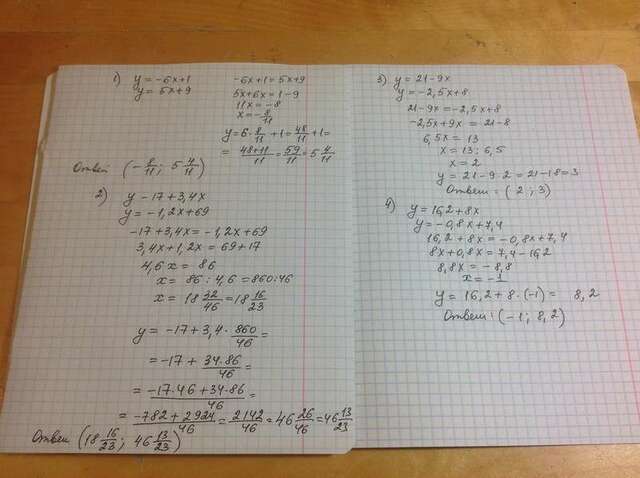 1) y = -6x+1
y = 5x+9
-6x+1 = 5x+9
5x+6x = 1-9
11x = -8
x = -8/11
y = 6·8/11 + 1 = 48/11 + 1 =
= 48+11/11 = 59/11 = 5 4/11
Ответ (-8/11; 5 4/11)
2) y -17+3,4x
y = -1,2x+69
-17+3,4x = -1,2x+69
3,4x+1,2x = 69+17
4,6x = 86
x = 86:4,6 = 860:46
x = 18 32/46 = 18 16/23
y = -17+3,4·860/46 =
= -17 + 34·86/46 =
= -17·46+34·86/46 =
= -782+2924/46 = 2142/46 = 46 26/46 = 46 13/23
Ответ (18 16/23; 46 13/23)
3) y = 21-9x
y = -2,5x+8
21-9x = -2,5x+8
-2,5x+9x = 21-8
6,5x = 13
x = 13:6,5
x = 2
y = 21-9·2 = 21-18 = 3
Ответ: (2; 3)
4) y = 16,2+8x
y = -0,8x+7,4
16,2+8x = -0,8x+7,4
8x+0,8x = 7,4-16,2
8,8x = -8,8
x = -1
y = 16,2+8·(-1) = 8,2
Ответ: (-1; 8,2)